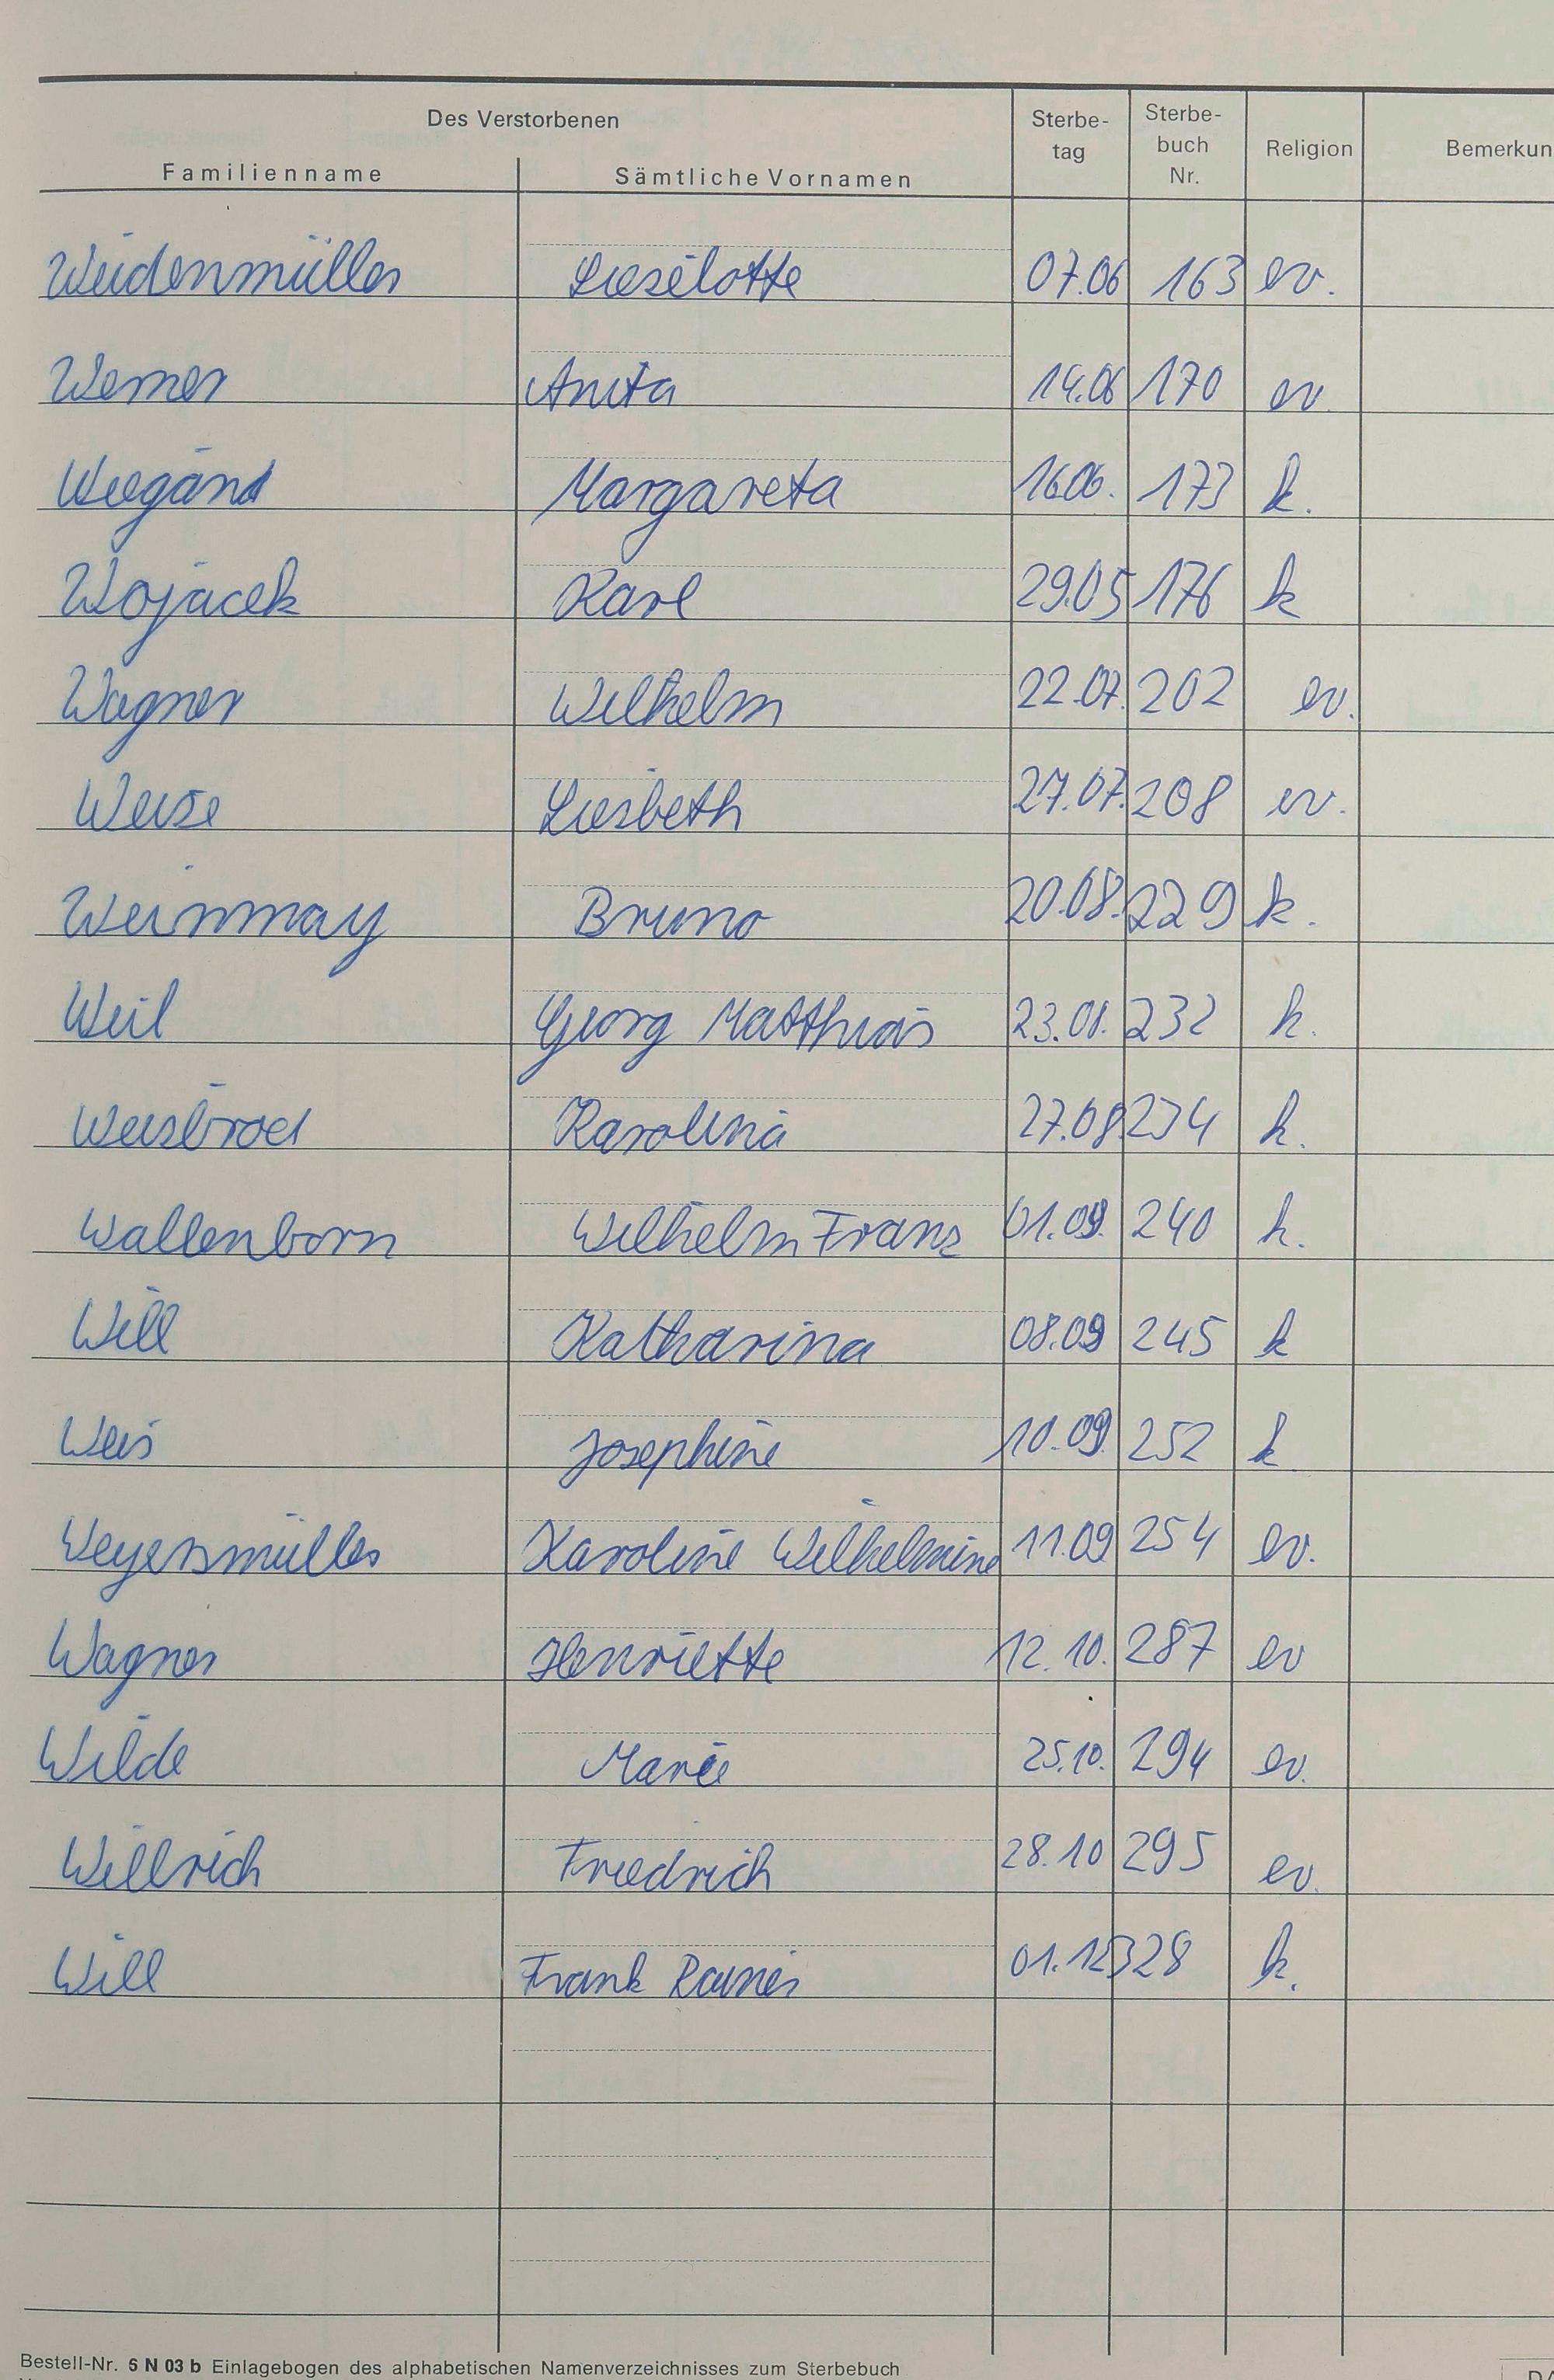 Des Verstorbenen
Familienname Sämtliche Vornamen Sterbe-tag Sterbe-buch Nr. Religion Bemerkun
Weidenmüller Lieselotte 07.06 163 ev.
Werner Anita 14.06 170 ev
Wiegand Margareta 16.06. 173 k.
Wojacek Karl 29.05 176 k
Wagner Wilhelm 22.07. 202 ev.
Weise Liesbeth 27.07. 208 ev.
Weinmay Bruno 20.08. 229 k.
Weil Georg Matthias 23.08. 232 k.
Weisbrod Karolina 27.08 234 k.
Wallenborn Wilhelm Franz 01.09. 240 k.
Will Katharina 08.09 245 k
Weis Josephine 10.09 252 k
Weyersmüller Karoline Wilhelmine 11.09 254 ev.
Wagner Henriette 12.10. 287 ev
Wilde Marie 25.10. 294 ev.
Willrich Friedrich 28.10 295 ev.
Will Frank Rainer 01.12 328 k.
Bestell-Nr. 6 N 03 b Einlagebogen des alphabetischen Namenverzeichnisses zum Sterbebuch